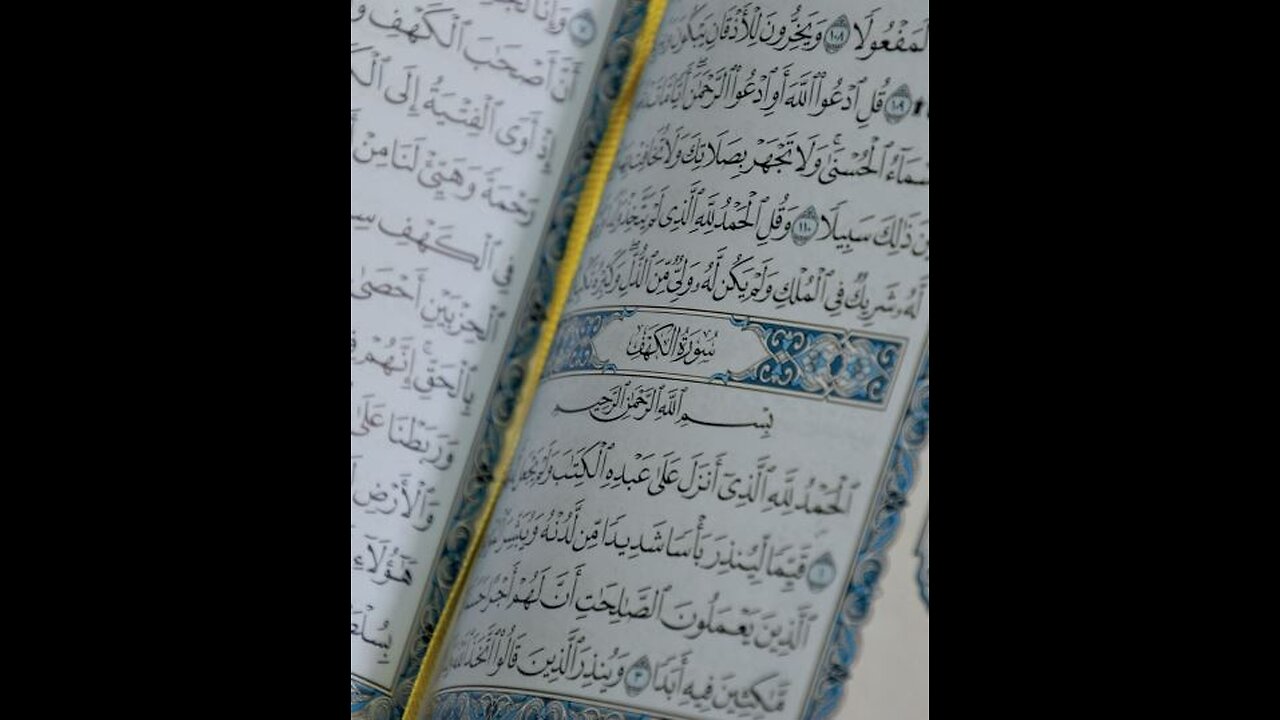 لَمَفْعُولًا ١٠٨ وَيَخِرُّونَ لِلْأَذْقَانِ يَبْكُونَ
١٠٩ قُلِ ٱدْعُوا۟ ٱللَّهَ أَوِ ٱدْعُوا۟ ٱلرَّحْمَٰنَ أَيًّا مَّا
ٱلْحُسْنَىٰ وَلَا تَجْهَرْ بِصَلَاتِكَ وَلَا تُخَافِتْ بِهَا
ذَٰلِكَ سَبِيلًا ١١٠ وَقُلِ ٱلْحَمْدُ لِلَّهِ ٱلَّذِى لَمْ يَتَّخِذْ
لَّهُۥ شَرِيكٌ فِى ٱلْمُلْكِ وَلَمْ يَكُن لَّهُۥ وَلِىٌّ مِّنَ ٱلذُّلِّ وَكَبِّرْهُ
سُورَةُ الكَهْفِ
بِسْمِ ٱللَّهِ ٱلرَّحْمَٰنِ ٱلرَّحِيمِ
ٱلْحَمْدُ لِلَّهِ ٱلَّذِىٓ أَنزَلَ عَلَىٰ عَبْدِهِ ٱلْكِتَٰبَ وَلَمْ يَجْعَل
١ قَيِّمًا لِّيُنذِرَ بَأْسًا شَدِيدًا مِّن لَّدُنْهُ وَيُبَشِّرَ
ٱلَّذِينَ يَعْمَلُونَ ٱلصَّٰلِحَٰتِ أَنَّ لَهُمْ أَجْرًا
مَّٰكِثِينَ فِيهِ أَبَدًا ٣ وَيُنذِرَ ٱلَّذِينَ قَالُوا۟ ٱتَّخَذَ ٱللَّهُ
٧ وَإِنَّا
أَنَّ أَصْحَٰبَ ٱلْكَهْفِ
إِذْ أَوَى ٱلْفِتْيَةُ إِلَى
رَحْمَةً وَهَيِّئْ لَنَا مِنْ
فِى ٱلْكَهْفِ
ٱلْحِزْبَيْنِ أَحْصَىٰ
بِٱلْحَقِّ إِنَّهُمْ
وَرَبَطْنَا عَلَىٰ
وَٱلْأَرْضِ
هَٰٓؤُلَآءِ